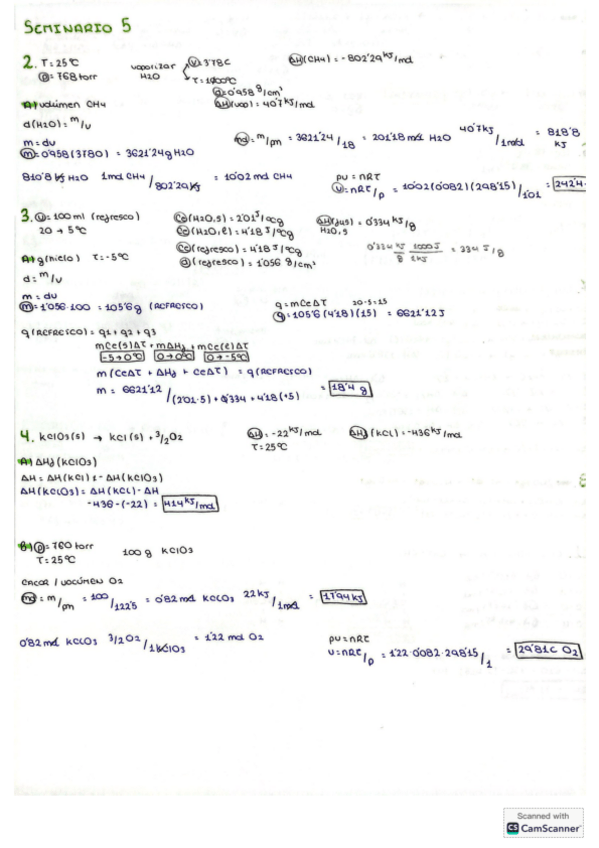 SEMINARIO 5
2. T=25ºC
P=768 torr
vaporizar H2O
V 3'78L
T=100ºC
ΔH(CH4)=-802'29 kJ/mol
d=0'958 g/cm³
ΔH(vap)=40'7 kJ/mol
A) volúmen CH4
d(H2O)=m/v
m=dv
m=0'958(3780) = 3621'24g H2O
mol = m/pm = 3621'24/18 = 201'18 mol H2O 40'7kJ/1mol = 818'8 kJ
810'8 kJ H2O 1mol CH4/802'29kJ = 10'02 mol CH4
pv=nRT
v=nRT/p = 10'02(0'082)(298'15)/1'01 = 242'4
3. V=100 ml (refresco)
20 → 5ºC
Ce(H2O,s)=2'01 J/ºCg
Ce(H2O,l)=4'18 J/ºCg
Ce(refresco)=4'18 J/ºCg
d(refresco)=1'056 g/cm³
ΔH(fus)=0'334 kJ/g
H2O,s
0'334 kJ/g 1000J/1kJ = 334 J/g
A) g(hielo) T=-5ºC
d=m/v
m=dv
m=1'056·100=105'6g (REFRESCO)
q=mCeΔT 20-5=15
q=105'6(4'18)(15) = 6621'12J
q(REFRESCO)=q1+q2+q3
mCe(s)ΔT+mΔHf+mCe(l)ΔT
-5→0ºC 0→0ºC 0→-5ºC
m(CeΔT+ΔHf+CeΔT) = q(REFRESCO)
m = 6621'12/(2'01·5)+0'334+4'18(+5) = 18'4 g
4. KClO3(s) → KCl(s)+3/2O2
ΔH=-22 kJ/mol
T=25ºC
ΔHf(KCl)=-436 kJ/mol
A) ΔHf(KClO3)
ΔH(KClO3)=ΔH(KCl)-ΔH
-436-(-22) = 414 kJ/mol
B) P=760 torr
T=25ºC
100 g KClO3
CALOR/VOLÚMEN O2
mol=m/pm = 100/122'5 = 0'82 mol KClO3 22kJ/1mol = 17'94kJ
0'82 mol KClO3 3/2O2/1KClO3 = 1'22 mol O2
pv=nRT
v=nRT/p = 1'22·0'082·298'15/1 = 29'81L O2
Scanned with
CS CamScanner